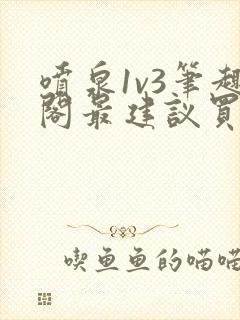 噴泉1v3筆趣
閣最建議買
喫魚魚的喵喵